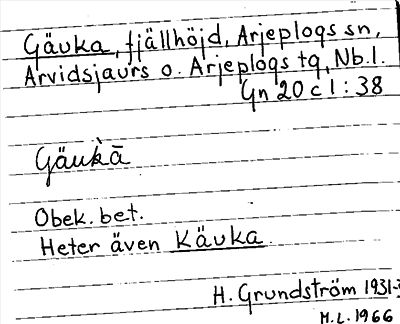 Gäuka, fjällhöjd, Arjeplogs sn,
Arvidsjaurs o. Arjeplogs tg, Nb.l.
Gn 20 c 1 : 38
Gäuk̀ā
Obek. bet.
Heter även Käuka
H. Grundström 1931-
M.L. 1966